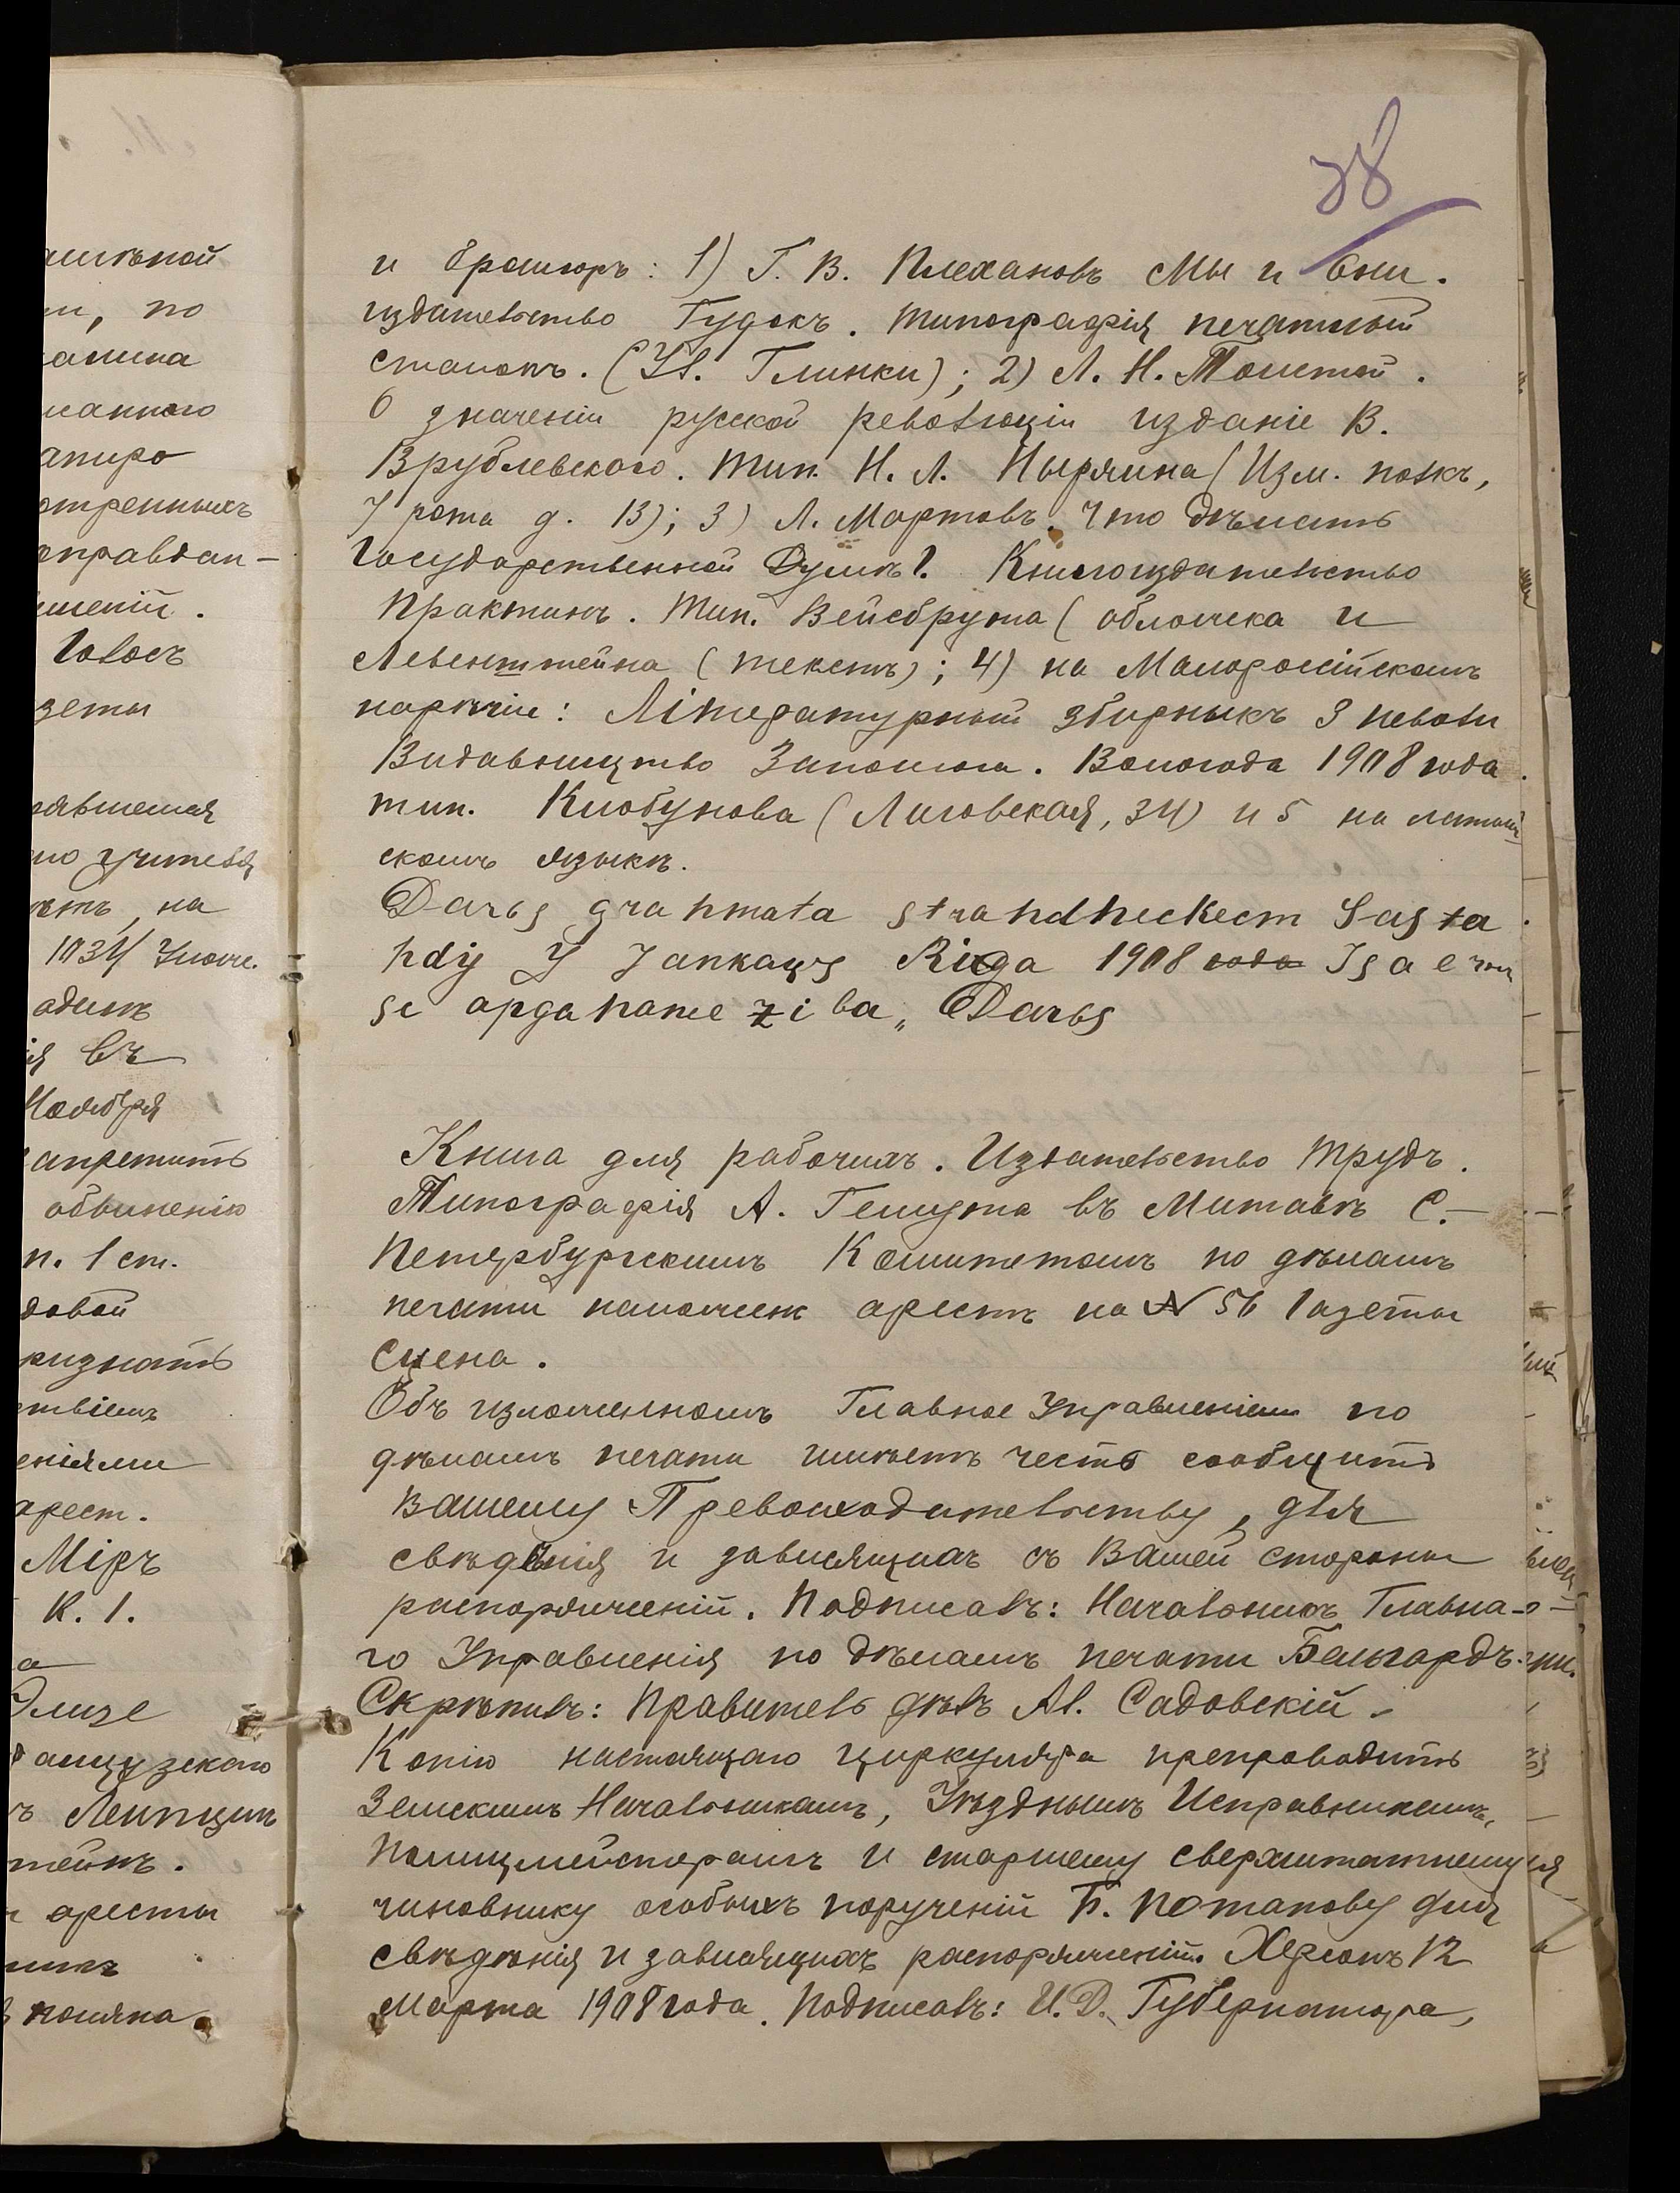 38
и брошюръ: 1) Г. В. Плехановъ Мы и Они.
издательство Гудокъ. Типографія печатный
станокъ. (Ул. Глинки); 2) Л. Н. Толстой.
О значеніи русской революціи изданіе В.
Врублевского. Тип. Н. Л. Ныркина (Изм. полкъ,
7 рота д. 13); 3) Л. Мартовъ. Что дѣлать
Государственной Думѣ?. Книгоиздательство
Практикъ. Тип. Вейсбрута (обложка и
Левенштейна (текстъ); 4) на Малоросійскомъ
нарѣчіе: Літературный збирныкъ З неволи
Видавництво Запомога. Вологода 1908 года.
тип. Клобукова (Лиговская, 34) и 5 на латыш
скомъ языкѣ.
Darbs grahmata strahdneekeem Sasta
hdij J Jankaws Riga 1908 года Isa
se apgahane ziba„ Darbs
Книга для рабочихъ. Издательство Трудъ.
Типографія А. въ Митавѣ С.-
Петербургскимъ Комитетомъ по дѣламъ
печати наложенъ арестъ на № 56 Газеты
Сцена.
Объ изложенномъ Главное Управленіем по
дѣламъ печати имѣетъ честь сообщить
Вашему Превосходительству, для
свѣдѣнія и зависящихъ съ Вашей стороны
распоряженій. Подписалъ: Начальникъ Главна-
го Управленія по дѣламъ печати Бельгардъ.
Скрѣпилъ: Правитель дѣлъ Ал. Садовскій.
Копію настоящаго циркуляра препроводить
Земскимъ Начальникамъ, Уѣзднымъ Исправникамъ,
Полицмейстерамъ и старшему сверхштатнему
чиновнику особыхъ порученій Б. Потапову для
свѣдѣнія и зависящихъ распоряженій. Херсонъ 12
Марта 1908 года. Подписалъ: И. Д. Губернатора,